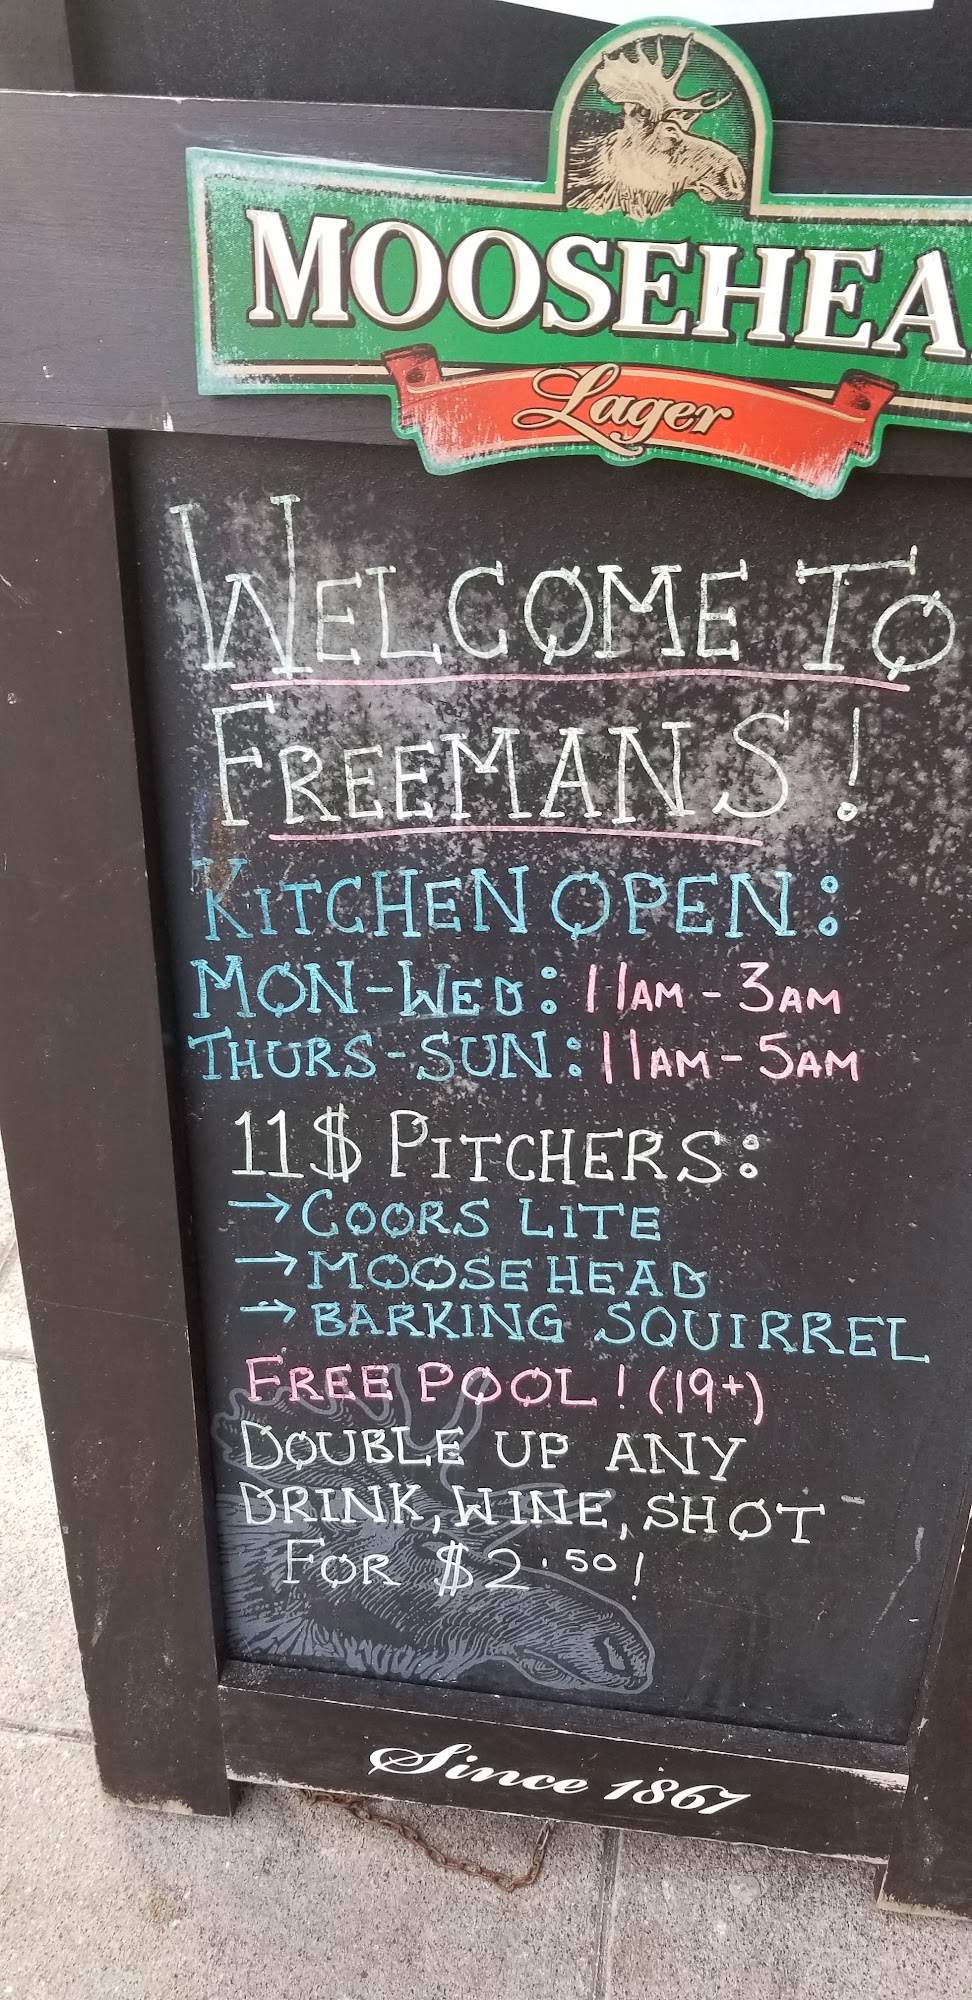 MOOSEHEA
Lager
WELCOME TO
FREEMANS!
KITCHEN OPEN:
MON-WED: 11AM - 3AM
THURS-SUN: 11AM - 5AM
11$ PITCHERS:
→ COORS LITE
→ MOOSEHEAD
→ BARKING SQUIRREL
FREE POOL! (19+)
DOUBLE UP ANY
DRINK, WINE, SHOT
FOR $2.50!
Since 1867